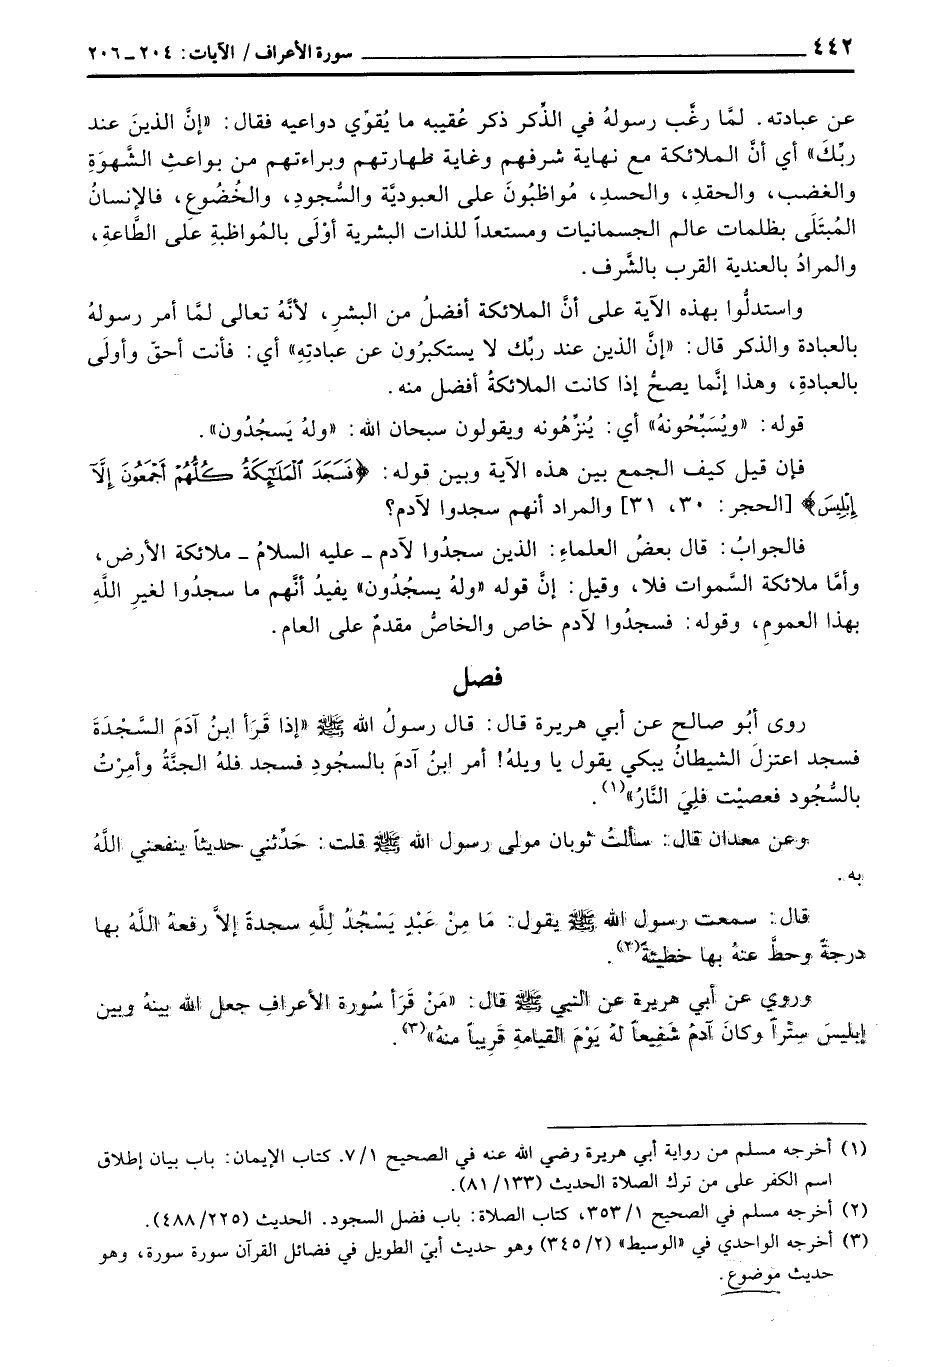 ٤٤٢ ـــــــــــ سورة الأعراف/ الآيات: ٢٠٤ ـ ٢٠٦
عن عبادته. لمَّا رغَّب رسولهُ في الذِّكر ذكر عُقيبه ما يُقوِّي دواعيه فقال: «إنَّ الذينَ عند
ربِّكَ» أي أنَّ الملائكة مع نهاية شرفهم وغاية طهارتهم وبراءتهم من بواعثِ الشَّهوَةِ
والغضب، والحقدِ، والحسدِ، مُواظبُونَ على العبوديَّة والسُّجودِ، والخُضُوع، فالإنسانُ
المُبتَلَى بظلمات عالم الجسمانيات ومستعداً للذات البشرية أوْلَى بالمُواظبةِ علَى الطَّاعةِ،
والمرادُ بالعندية القرب بالشَّرف.
واستدلُّوا بهذه الآية على أنَّ الملائكة أفضلُ من البشرِ، لأنَّهُ تعالى لمَّا أمر رسولهُ
بالعبادة والذكر قال: «إنَّ الذين عند ربِّك لا يستكبرُون عن عبادتِهِ» أي: فأنت أحقّ وأولَى
بالعبادةِ، وهذا إنَّما يصحُّ إذا كانت الملائكةُ أفضل منه.
قوله: «ويُسَبِّحُونهُ» أي: يُنزِّهُونه ويقولون سبحان الله: «ولهُ يَسجُدُون».
فإن قيل كيف الجمع بين هذه الآية وبين قوله: ﴿فَسَجَدَ ٱلْمَلَٰٓئِكَةُ كُلُّهُمْ أَجْمَعُونَ إِلَّآ
إِبْلِيسَ﴾ [الحجر: ٣٠، ٣١] والمراد أنهم سجدوا لآدم؟
فالجوابُ: قال بعضُ العلماءِ: الذين سجدُوا لآدم ـ عليه السلامُ ـ ملائكة الأرض،
وأمَّا ملائكة السَّموات فلا، وقيل: إنَّ قوله «ولهُ يسجُدُون» يفيدُ أنَّهم ما سجدُوا لغيرِ اللَّهِ
بهذا العمومِ، وقوله: فسجدُوا لآدم خاص والخاصُّ مقدمٌ على العام.
فصل
روى أبُو صالح عن أبي هريرة قال: قال رسولُ الله ﷺ «إذا قَرَأ ابنُ آدَمَ السَّجْدَةَ
فسجد اعتزلَ الشيطانُ يبكي يقول يا ويلهُ! أمر ابنُ آدمَ بالسجُودِ فسجد فلهُ الجنَّةُ وأمِرْتُ
بالسُّجُود فعصيْت فلِيَ النَّارُ»(١).
وعن معدان قال: سألتُ ثوبان مولى رسول الله ﷺ قلت: حَدِّثني حديثاً ينفعني اللَّهُ
به.
قال: سمعت رسول الله ﷺ يقول: مَا مِنْ عَبْدٍ يَسْجُدُ لِلَّهِ سجدةً إلاَّ رفعهُ اللَّهُ بها
درجةً وحطَّ عنهُ بها خطيئةً(٢).
وروي عن أبي هريرة عن النبي ﷺ قال: «مَنْ قَرَأ سُورة الأعرافِ جعل الله بينهُ وبين
إبليسَ سِتْراً وكانَ آدمُ شَفِيعاً لهُ يَوْمَ القيامةِ قَرِيباً منهُ»(٣).
(١) أخرجه مسلم من رواية أبي هريرة رضي الله عنه في الصحيح ٧/١. كتاب الإيمان: باب بيان إطلاق
اسم الكفر على من ترك الصلاة الحديث (٨١/١٣٣).
(٢) أخرجه مسلم في الصحيح ٣٥٣/١، كتاب الصلاة: باب فضل السجود. الحديث (٤٨٨/٢٢٥).
(٣) أخرجه الواحدي في «الوسيط» (٣٤٥/٢) وهو حديث أبيّ الطويل في فضائل القرآن سورة سورة، وهو
حديث موضوع.